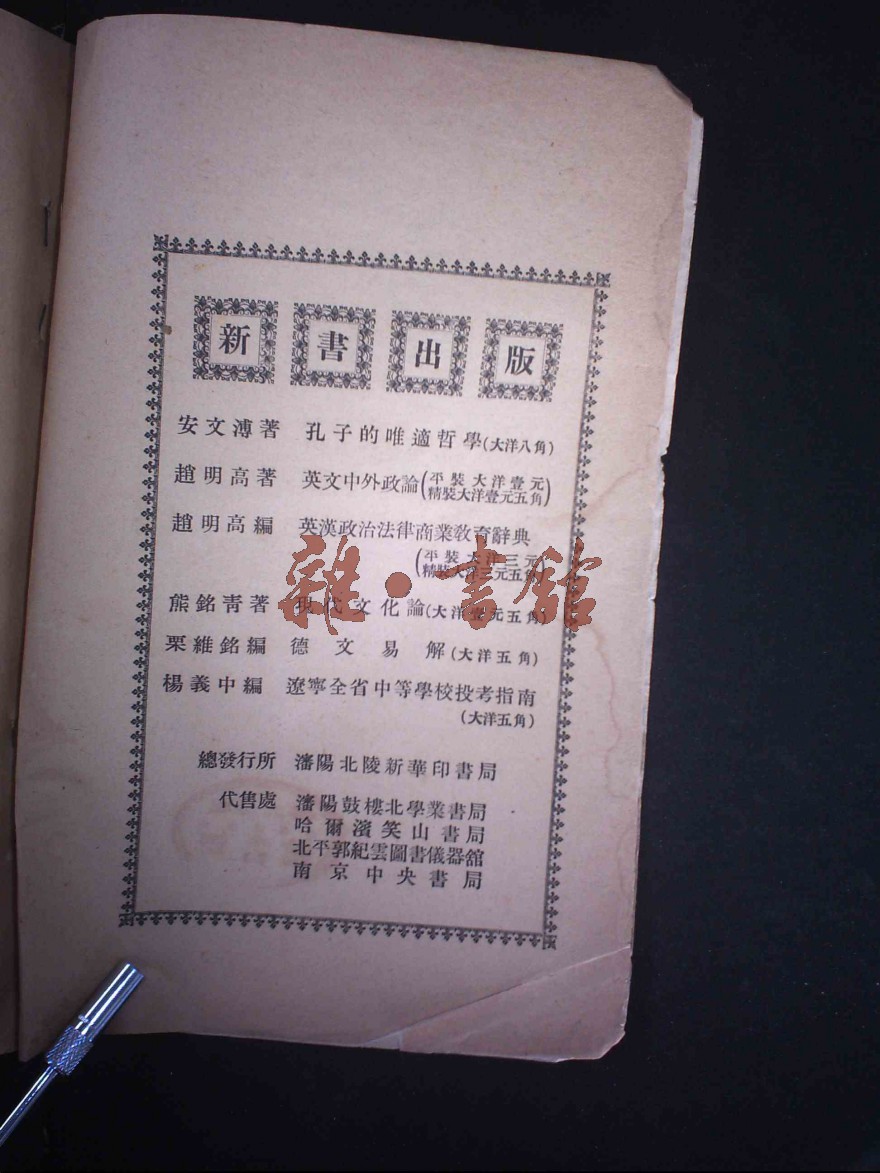 新書出版
安文溥著 孔子的唯適哲學(大洋八角)
趙明高著 英文中外政論(平裝大洋壹元 精裝大洋壹元五角)
趙明高編 英漢政治法律商業教育辭典
(平裝大洋三元 精裝大洋三元五角)
熊銘青著 現代文化論(大洋壹元五角)
栗維銘編 德文易解(大洋五角)
楊義中編 遼寧全省中等學校投考指南
(大洋五角)
總發行所 瀋陽北陵新華印書局
代售處 瀋陽鼓樓北學業書局
哈爾濱笑山書局
北平郭紀雲圖書儀器舘
南京中央書局
雜·書館